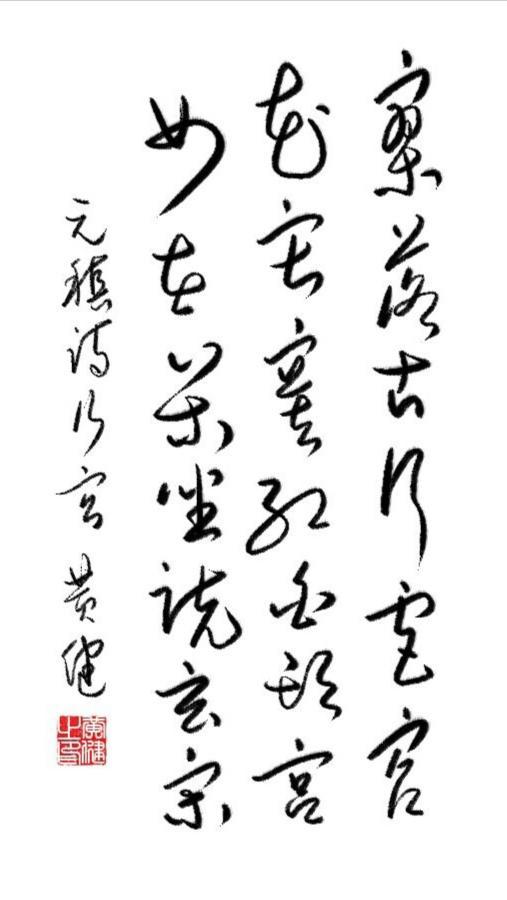 寥落古行宫宫
花寂寞红白头宫
女在闲坐说玄宗
元稹诗行宫 黄健
黄健之印